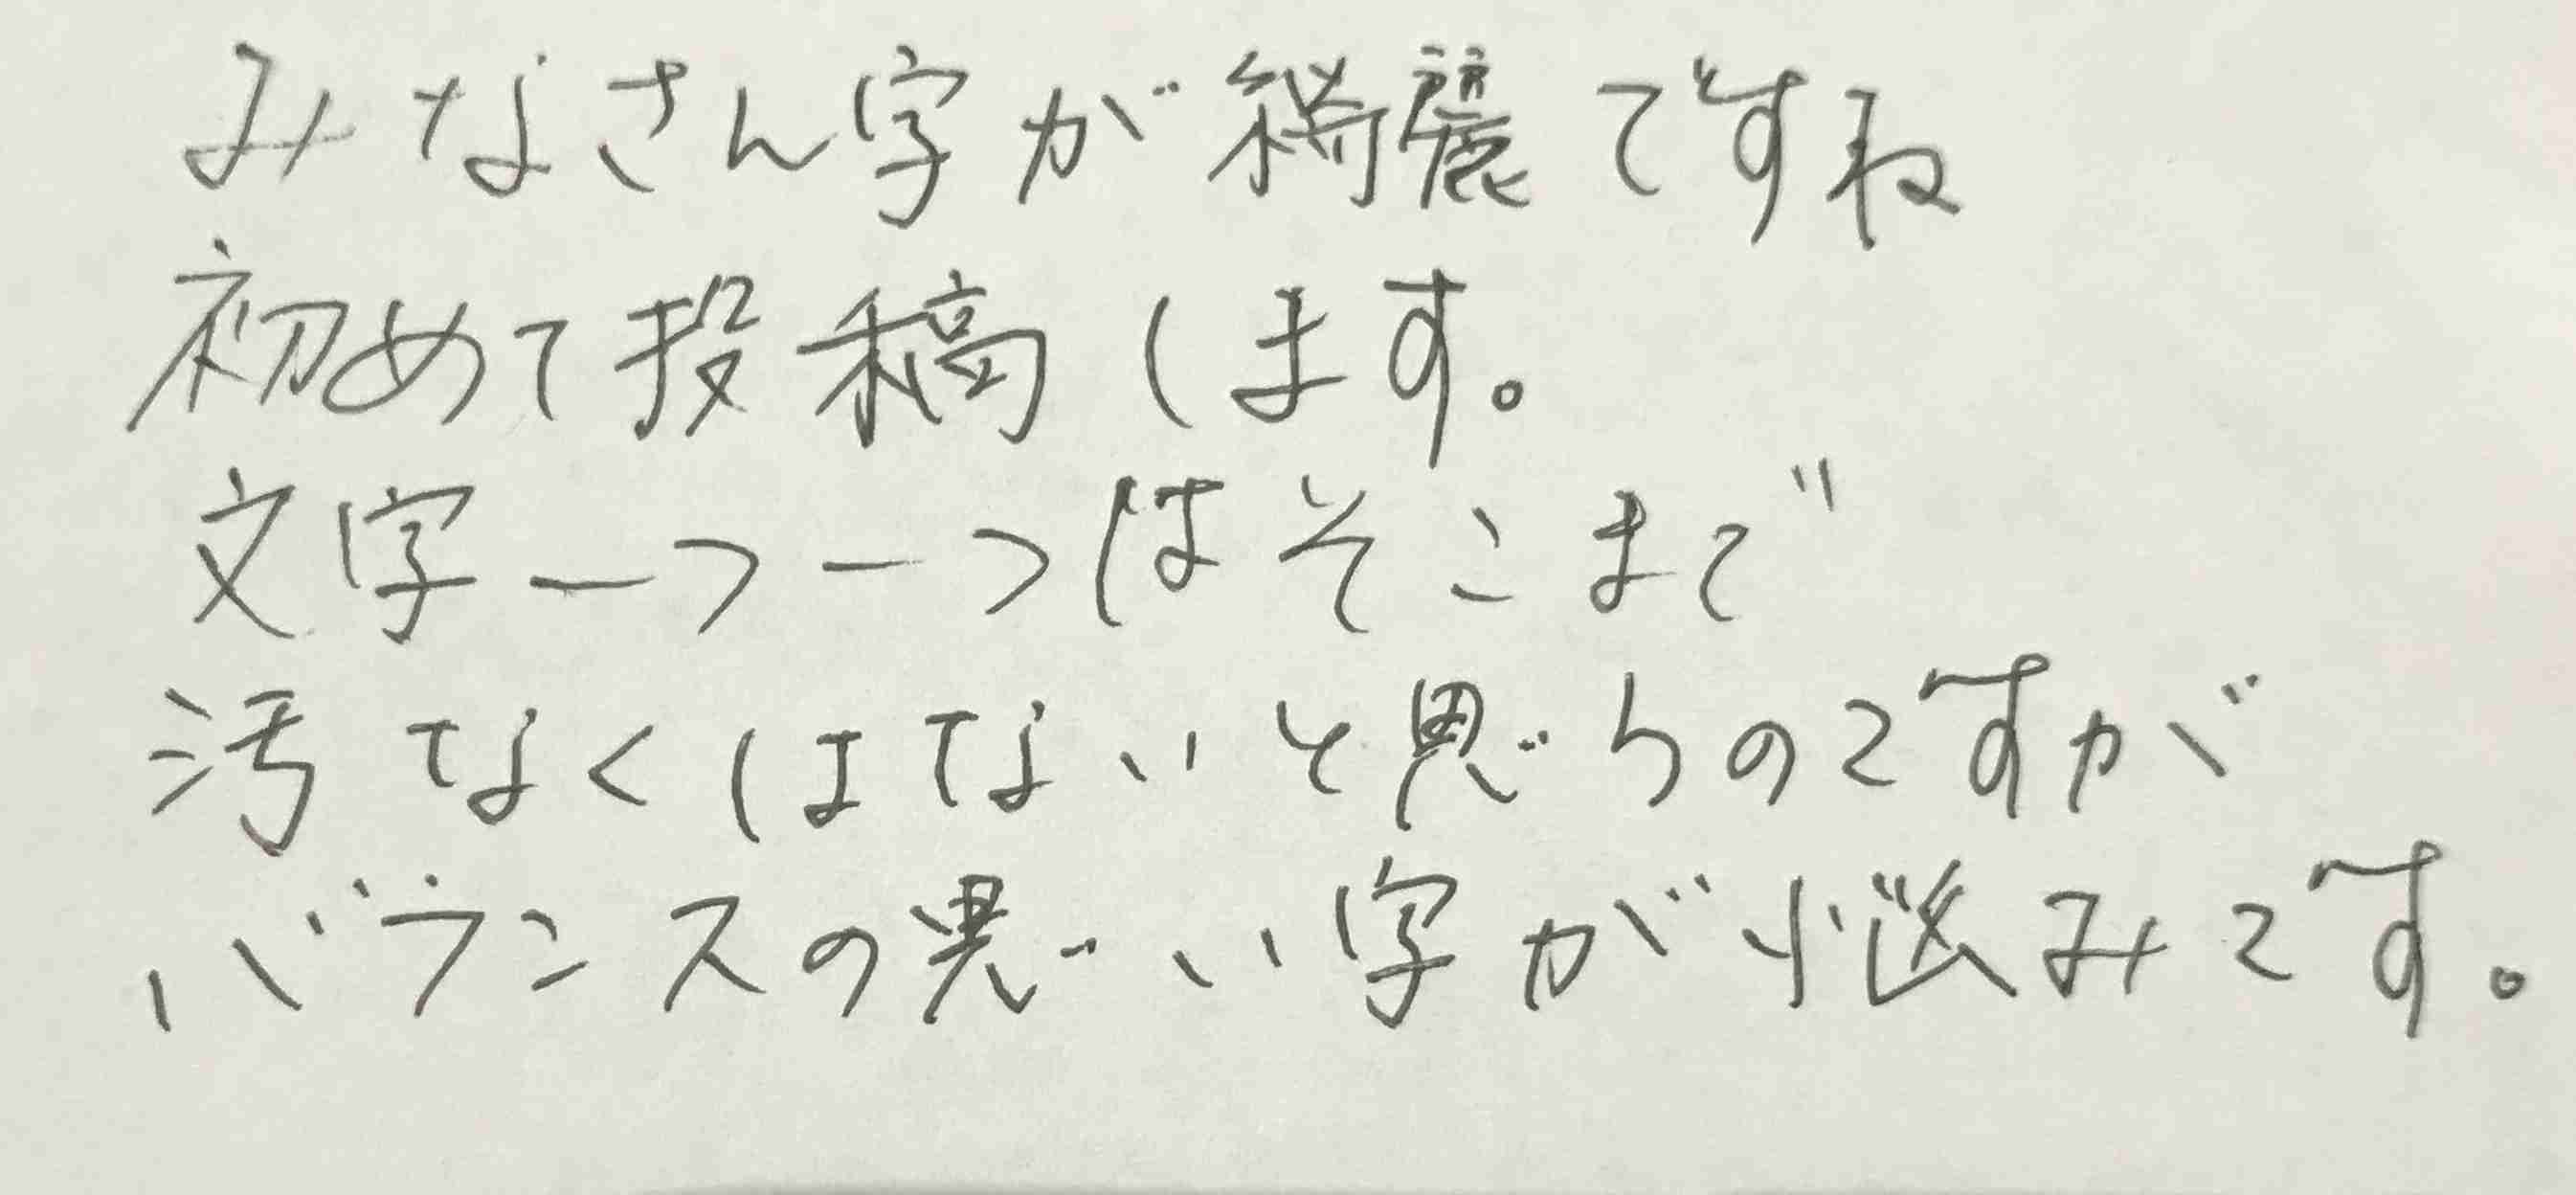 みなさん字が綺麗ですね
初めて投稿します。
文字一つ一つはそこまで
汚なくはないと思うのですが
バランスの悪い字が悩みです。